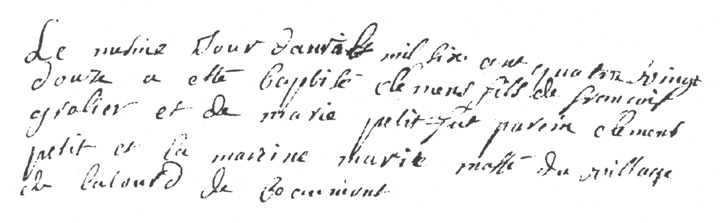 Le mesme Jour davril mil six cent quatre vingt
douze a esté baptisé clemens fils de francois
grolier et de marie petit fut parein clemens
petit et la marrine marie du village
de de